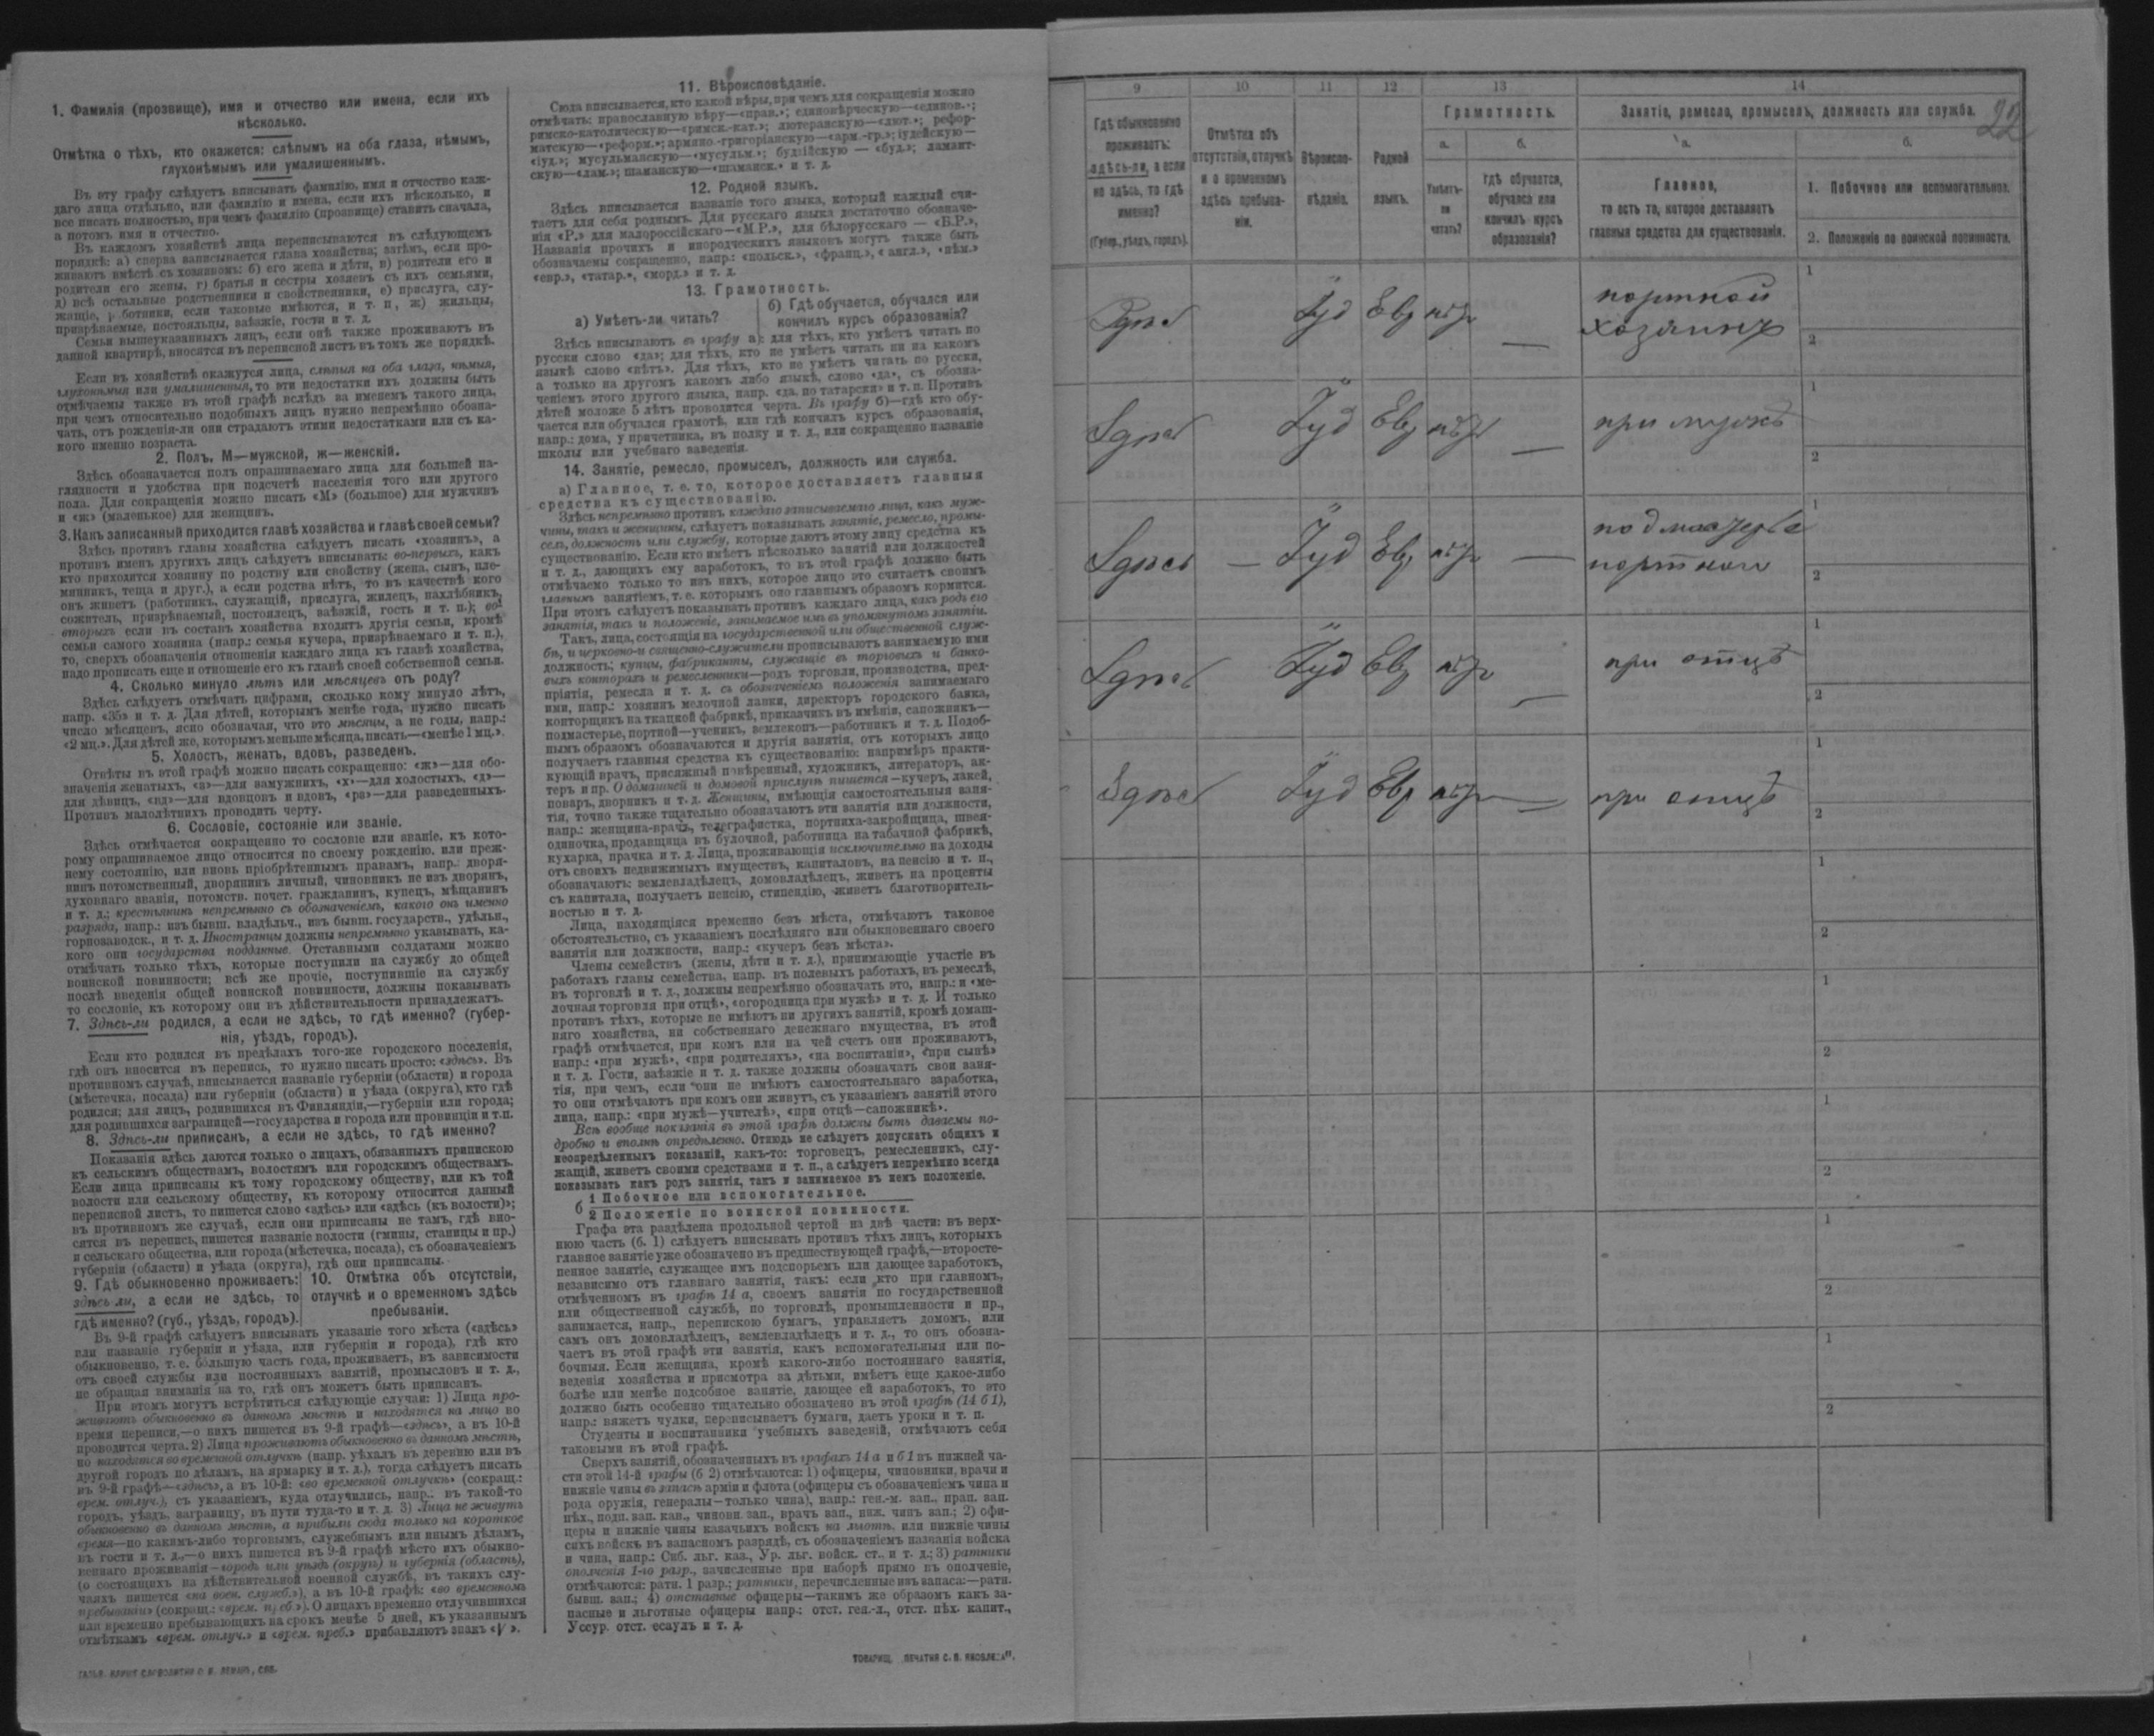 1. Фамилія (прозвище), имя и отчество или имена, если ихъ
нѣсколько.
Отмѣтка о тѣхъ, кто окажется: слѣпымъ на оба глаза, нѣмымъ,
глухонѣмымъ или умалишеннымъ.
Въ эту графу слѣдуетъ вписывать фамилію, имя и отчество каж-
даго лица отдѣльно, или фамилію и имена, если ихъ нѣсколько, и
все писать полностью, при чемъ фамилію (прозвище) ставить сначала,
а потомъ имя и отчество.
Въ каждомъ хозяйствѣ лица переписываются въ слѣдующемъ
порядкѣ: а) сперва записывается глава хозяйства; затѣмъ, если про-
живаютъ вмѣстѣ съ хозяиномъ: б) его жена и дѣти, в) родители его и
родители его жены, г) братья и сестры хозяевъ съ ихъ семьями,
д) всѣ остальные родственники и свойственники, е) прислуга, слу-
жащіе, работники, если таковые имѣются, и т. п., ж) жильцы,
призрѣваемые, постояльцы, заѣзжіе, гости и т. д.
Семьи вышеуказанныхъ лицъ, если онѣ также проживаютъ въ
данной квартирѣ, вносятся въ переписной листъ въ томъ же порядкѣ.
Если въ хозяйствѣ окажутся лица, слѣпыя на оба глаза, нѣмыя,
глухонѣмыя или умалишенныя, то эти недостатки ихъ должны быть
отмѣчаемы также въ этой графѣ вслѣдъ за именемъ такого лица,
при чемъ относительно подобныхъ лицъ нужно непремѣнно обозна-
чать, отъ рожденія-ли они страдаютъ этими недостатками или съ ка-
кого именно возраста.
2. Полъ. М—мужской, ж—женскій.
Здѣсь обозначается полъ опрашиваемаго лица для большей на-
глядности и удобства при подсчетѣ населенія того или другого
пола. Для сокращенія можно писать «М» (большое) для мужчинъ
и «ж» (маленькое) для женщинъ.
3. Какъ записанный приходится главѣ хозяйства и главѣ своей семьи?
Здѣсь противъ главы хозяйства слѣдуетъ писать «хозяинъ», а
противъ именъ другихъ лицъ слѣдуетъ вписывать: во-первыхъ, какъ
кто приходится хозяину по родству или свойству (жена, сынъ, пле-
мянникъ, теща и друг.), а если родства нѣтъ, то въ качествѣ кого
онъ живетъ (работникъ, служащій, прислуга, жилецъ, нахлѣбникъ,
сожитель, призрѣваемый, постоялецъ, заѣзжій, гость и т. п.); во-
вторыхъ если въ составъ хозяйства входятъ другія семьи, кромѣ
семьи самого хозяина (напр.: семья кучера, призрѣваемаго и т. п.),
то, сверхъ обозначенія отношенія каждаго лица къ главѣ хозяйства,
надо прописать еще и отношеніе его къ главѣ своей собственной семьи.
4. Сколько минуло лѣтъ или мѣсяцевъ отъ роду?
Здѣсь слѣдуетъ отмѣчать цифрами, сколько кому минуло лѣтъ,
напр. «35» и т. д. Для дѣтей, которымъ менѣе года, нужно писать
число мѣсяцевъ, ясно обозначая, что это мѣсяцы, а не годы, напр.:
«2 мц.». Для дѣтей же, которымъ меньше мѣсяца, писать—«менѣе 1 мц.».
5. Холостъ, женатъ, вдовъ, разведенъ.
Отвѣты въ этой графѣ можно писать сокращенно: «ж»—для обо-
значенія женатыхъ, «з»—для замужнихъ, «х»—для холостыхъ, «д»—
для дѣвицъ, «вд»—для вдовцовъ и вдовъ, «ра»—для разведенныхъ.
Противъ малолѣтнихъ проводить черту.
6. Сословіе, состояніе или званіе.
Здѣсь отмѣчается сокращенно то сословіе или званіе, къ кото-
рому опрашиваемое лицо относится по своему рожденію, или преж-
нему состоянію, или вновь пріобрѣтеннымъ правамъ, напр.: дворя-
нинъ потомственный, дворянинъ личный, чиновникъ не изъ дворянъ,
духовнаго званія, потомств. почет. гражданинъ, купецъ, мѣщанинъ
и т. д.; крестьянинъ непремѣнно съ обозначеніемъ, какого онъ именно
разряда, напр.: изъ бывш. владѣльч., изъ бывш. государств., удѣльн.,
горнозаводск., и т. д. Иностранцы должны непремѣнно указывать, ка-
кого они государства подданные. Отставными солдатами можно
отмѣчать только тѣхъ, которые поступили на службу до общей
воинской повинности; всѣ же прочіе, поступившіе на службу
послѣ введенія общей воинской повинности, должны показывать
то сословіе, къ которому они въ дѣйствительности принадлежатъ.
7. Здѣсь-ли родился, а если не здѣсь, то гдѣ именно? (губер-
нія, уѣздъ, городъ).
Если кто родился въ предѣлахъ того-же городского поселенія,
гдѣ онъ вносится въ перепись, то нужно писать просто: «здѣсь». Въ
противномъ случаѣ, вписывается названіе губерніи (области) и города
(мѣстечка, посада) или губерніи (области) и уѣзда (округа), кто гдѣ
родился; для лицъ, родившихся въ Финляндіи,—губерніи или города;
для родившихся заграницей—государства и города или провинціи и т.п.
8. Здѣсь-ли приписанъ, а если не здѣсь, то гдѣ именно?
Показанія здѣсь даются только о лицахъ, обязанныхъ припискою
къ сельскимъ обществамъ, волостямъ или городскимъ обществамъ.
Если лица приписаны къ тому городскому обществу, или къ той
волости или сельскому обществу, къ которому относится данный
переписной листъ, то пишется слово «здѣсь» или «здѣсь (къ волости)»;
въ противномъ же случаѣ, если они приписаны не тамъ, гдѣ вно-
сятся въ перепись, пишется названіе волости (гмины, станицы и пр.)
и сельскаго общества, или города (мѣстечка, посада), съ обозначеніемъ
губерніи (области) и уѣзда (округа), гдѣ они приписаны.
9. Гдѣ обыкновенно проживаетъ:
здѣсь ли, а если не здѣсь, то
гдѣ именно? (губ., уѣздъ, городъ).
10. Отмѣтка объ отсутствіи,
отлучкѣ и о временномъ здѣсь
пребываніи.
Въ 9-й графѣ слѣдуетъ вписывать указаніе того мѣста («здѣсь»
или названіе губерніи и уѣзда, или губерніи и города), гдѣ кто
обыкновенно, т. е. большую часть года, проживаетъ, въ зависимости
отъ своей службы или постоянныхъ занятій, промысловъ и т. д.,
не обращая вниманія на то, гдѣ онъ можетъ быть приписанъ.
При этомъ могутъ встрѣтиться слѣдующіе случаи: 1) Лица про-
живаютъ обыкновенно въ данномъ мѣстѣ и находятся на лицо во
время переписи,—о нихъ пишется въ 9-й графѣ—«здѣсь», а въ 10-й
проводится черта. 2) Лица проживаютъ обыкновенно въ данномъ мѣстѣ,
но находятся во временной отлучкѣ (напр. уѣхалъ въ деревню или въ
другой городъ по дѣламъ, на ярмарку и т. д.), тогда слѣдуетъ писать
въ 9-й графѣ—«здѣсь», а въ 10-й: «во временной отлучкѣ» (сокращ.:
врем. отлуч.), съ указаніемъ, куда отлучились, напр.: въ такой-то
городъ, уѣздъ, заграницу, въ пути туда-то и т. д. 3) Лица не живутъ
обыкновенно въ данномъ мѣстѣ, а прибыли сюда только на короткое
время—по какимъ-либо торговымъ, служебнымъ или инымъ дѣламъ,
въ гости и т. д.,—о нихъ пишется въ 9-й графѣ мѣсто ихъ обыкно-
веннаго проживанія—городъ или уѣздъ (округъ) и губернія (область),
(о состоящихъ на дѣйствительной военной службѣ, въ такихъ слу-
чаяхъ пишется «на воен. служб.»), а въ 10-й графѣ: «во временномъ
пребываніи» (сокращ.: «врем. преб.»). О лицахъ временно отлучившихся
или временно пребывающихъ на срокъ менѣе 5 дней, къ указаннымъ
отмѣткамъ «врем. отлуч.» и «врем. преб.» прибавляютъ знакъ «V».
11. Вѣроисповѣданіе.
Сюда вписывается, кто какой вѣры, при чемъ для сокращенія можно
отмѣчать: православную вѣру—«прав.»; единовѣрческую—«единов.»;
римско-католическую—«римск.-кат.»; лютеранскую—«лют.»; рефор-
матскую—«реформ.»; армяно-григоріанскую—«арм.-гр.»; іудейскую—
«іуд.»; мусульманскую—«мусульм.»; буддійскую — «буд.»; ламаит-
скую—«лам.»; шаманскую—«шаманск.» и т. д.
12. Родной языкъ.
Здѣсь вписывается названіе того языка, который каждый счи-
таетъ для себя роднымъ. Для русскаго языка достаточно обозначе-
нія «Р.» для малороссійскаго—«М.Р.», для бѣлорусскаго — «Б.Р.»,
Названія прочихъ и инородческихъ языковъ могутъ также быть
обозначаемы сокращенно, напр.: «польск.», «франц.», «англ.», «нѣм.»
«евр.», «татар.», «морд.» и т. д.
13. Грамотность.
а) Умѣетъ-ли читать?
б) Гдѣ обучается, обучался или
кончилъ курсъ образованія?
Здѣсь вписываютъ въ графу а): для тѣхъ, кто умѣетъ читать по
русски слово «да»; для тѣхъ, кто не умѣетъ читать ни на какомъ
языкѣ слово «нѣтъ». Для тѣхъ, кто не умѣетъ читать по русски,
а только на другомъ какомъ либо языкѣ, слово «да», съ обозна-
ченіемъ этого другого языка, напр. «да, по татарски» и т. п. Противъ
дѣтей моложе 5 лѣтъ проводится черта. Въ графу б)—гдѣ кто обу-
чается или обучался грамотѣ, или гдѣ кончилъ курсъ образованія,
напр.: дома, у причетника, въ полку и т. д., или сокращенно названіе
школы или учебнаго заведенія.
14. Занятіе, ремесло, промыселъ, должность или служба.
а) Главное, т. е. то, которое доставляетъ главныя
средства къ существованію.
Здѣсь непремѣнно противъ каждаго записываемаго лица, какъ муж-
чины, такъ и женщины, слѣдуетъ показывать занятіе, ремесло, промы-
селъ, должность или службу, которые даютъ этому лицу средства къ
существованію. Если кто имѣетъ нѣсколько занятій или должностей
и т. д., дающихъ ему заработокъ, то въ этой графѣ должно быть
отмѣчаемо только то изъ нихъ, которое лицо это считаетъ своимъ
главнымъ занятіемъ, т. е. которымъ оно главнымъ образомъ кормится.
При этомъ слѣдуетъ показывать противъ каждаго лица, какъ родъ его
занятія, такъ и положеніе, занимаемое имъ въ упомянутомъ занятіи.
Такъ, лица, состоящія на государственной или общественной служ-
бѣ, и церковно-и священно-служители прописываютъ занимаемую ими
должность; купцы, фабриканты, служащіе въ торговыхъ и банко-
выхъ конторахъ и ремесленники—родъ торговли, производства, пред-
пріятія, ремесла и т. д. съ обозначеніемъ положенія занимаемаго
ими, напр.: хозяинъ мелочной лавки, директоръ городского банка,
конторщикъ на ткацкой фабрикѣ, приказчикъ въ имѣніи, сапожникъ—
подмастерье, портной—ученикъ, землекопъ—работникъ и т. д. Подоб-
нымъ образомъ обозначаются и другія занятія, отъ которыхъ лицо
получаетъ главныя средства къ существованію: напримѣръ практи-
кующій врачъ, присяжный повѣренный, художникъ, литераторъ, ак-
теръ и пр. О домашней и домовой прислугѣ пишется—кучеръ, лакей,
поваръ, дворникъ и т. д. Женщины, имѣющія самостоятельныя заня-
тія, точно также тщательно обозначаютъ эти занятія или должности,
напр.: женщина-врачъ, телеграфистка, портниха-закройщица, швея-
одиночка, продавщица въ булочной, работница на табачной фабрикѣ,
кухарка, прачка и т. д. Лица, проживающія исключительно на доходы
отъ своихъ недвижимыхъ имуществъ, капиталовъ, на пенсію и т. п.,
обозначаютъ: землевладѣлецъ, домовладѣлецъ, живетъ на проценты
съ капитала, получаетъ пенсію, стипендію, живетъ благотворитель-
ностью и т. д.
Лица, находящіяся временно безъ мѣста, отмѣчаютъ таковое
обстоятельство, съ указаніемъ послѣдняго или обыкновеннаго своего
занятія или должности, напр.: «кучеръ безъ мѣста».
Члены семействъ (жены, дѣти и т. д.), принимающіе участіе въ
работахъ главы семейства, напр. въ полевыхъ работахъ, въ ремеслѣ,
въ торговлѣ и т. д., должны непремѣнно обозначать это, напр.: и «ме-
лочная торговля при отцѣ», «огородница при мужѣ» и т. д. И только
противъ тѣхъ, которые не имѣютъ ни другихъ занятій, кромѣ домаш-
няго хозяйства, ни собственнаго денежнаго имущества, въ этой
графѣ отмѣчается, при комъ или на чей счетъ они проживаютъ,
напр.: «при мужѣ», «при родителяхъ», «на воспитаніи», «при сынѣ»
и т. д. Гости, заѣзжіе и т. д. также должны обозначать свои заня-
тія, при чемъ, если они не имѣютъ самостоятельнаго заработка,
то они отмѣчаютъ при комъ они живутъ, съ указаніемъ занятій этого
лица, напр.: «при мужѣ—учителѣ», «при отцѣ—сапожникѣ».
Всѣ вообще показанія въ этой графѣ должны быть даваемы по-
дробно и вполнѣ опредѣленно. Отнюдь не слѣдуетъ допускать общихъ и
неопредѣленныхъ показаній, какъ-то: торговецъ, ремесленникъ, слу-
жащій, живетъ своими средствами и т. п., а слѣдуетъ непремѣнно всегда
показывать какъ родъ занятія, такъ и занимаемое въ немъ положеніе.
б
1 Побочное или вспомогательное.
2 Положеніе по воинской повинности.
Графа эта раздѣлена продольной чертой на двѣ части: въ верх-
нюю часть (б. 1) слѣдуетъ вписывать противъ тѣхъ лицъ, которыхъ
главное занятіе уже обозначено въ предшествующей графѣ,—второсте-
пенное занятіе, служащее имъ подспорьемъ или дающее заработокъ,
независимо отъ главнаго занятія, такъ: если кто при главномъ,
отмѣченномъ въ графѣ 14 а, своемъ занятіи по государственной
или общественной службѣ, по торговлѣ, промышленности и пр.,
занимается, напр., перепискою бумагъ, управляетъ домомъ, или
самъ онъ домовладѣлецъ, землевладѣлецъ и т. д., то онъ обозна-
чаетъ въ этой графѣ эти занятія, какъ вспомогательныя или по-
бочныя. Если женщина, кромѣ какого-либо постояннаго занятія,
веденія хозяйства и присмотра за дѣтьми, имѣетъ еще какое-либо
болѣе или менѣе подсобное занятіе, дающее ей заработокъ, то это
должно быть особенно тщательно обозначено въ этой графѣ (14 б 1),
напр.: вяжетъ чулки, переписываетъ бумаги, даетъ уроки и т. п.
Студенты и воспитанники учебныхъ заведеній, отмѣчаютъ себя
таковыми въ этой графѣ.
Сверхъ занятій, обозначенныхъ въ графахъ 14 а и б 1 въ нижней ча-
сти этой 14-й графы (б 2) отмѣчаются: 1) офицеры, чиновники, врачи и
нижніе чины въ запасѣ арміи и флота (офицеры съ обозначеніемъ чина и
рода оружія, генералы—только чина), напр.: ген.-м. зап., прап. зап.
пѣх., подп. зап. кав., чиновн. зап., врачъ зап., ниж. чинъ зап.; 2) офи-
церы и нижніе чины казачьихъ войскъ на льготѣ, или нижніе чины
сихъ войскъ въ запасномъ разрядѣ, съ обозначеніемъ названія войска
и чина, напр.: Сиб. льг. каз., Ур. льг. войск. ст. и т. д.; 3) ратники
ополченія 1-го разр., зачисленные при наборѣ прямо въ ополченіе,
отмѣчаются: ратн. 1 разр.; ратники, перечисленные изъ запаса:—ратн.
бывш. зап.; 4) отставные офицеры—такимъ же образомъ какъ за-
пасные и льготные офицеры напр.: отст. ген.-л., отст. пѣх. капит.,
Уссур. отст. есаулъ и т. д.
ТОВАРИЩ. „ПЕЧАТНЯ С. П. ЯКОВЛЕВА“.
22
9 10 11 12 13 14
Гдѣ обыкновенно
проживаетъ:
здѣсь-ли, а если
не здѣсь, то гдѣ
именно?
(Губер., уѣздъ, городъ).
Отмѣтка объ
отсутствіи, отлучкѣ
и о временномъ
здѣсь пребыва-
ніи.
Вѣроиспо-
вѣданіе.
Родной
языкъ.
Грамотность.
а.
Умѣетъ-
ли
читать?
б.
Гдѣ обучается,
обучался или
кончилъ курсъ
образованія?
Занятіе, ремесло, промыселъ, должность или служба.
а.
Главное,
то есть то, которое доставляетъ
главныя средства для существованія.
б.
1. Побочное или вспомогательное.
2. Положеніе по воинской повинности.
Здѣсь Іуд Евр нѣтъ — портной
хозяинъ
1
2
Здѣсь Іуд Евр нѣтъ — при мужѣ
1
2
Здѣсь — Іуд Евр нѣтъ — подмастерье
портного
1
2
Здѣсь Іуд Евр нѣтъ — при отцѣ
1
2
Здѣсь Іуд Евр нѣтъ — при отцѣ
1
2
1
2
1
2
1
2
1
2
1
2